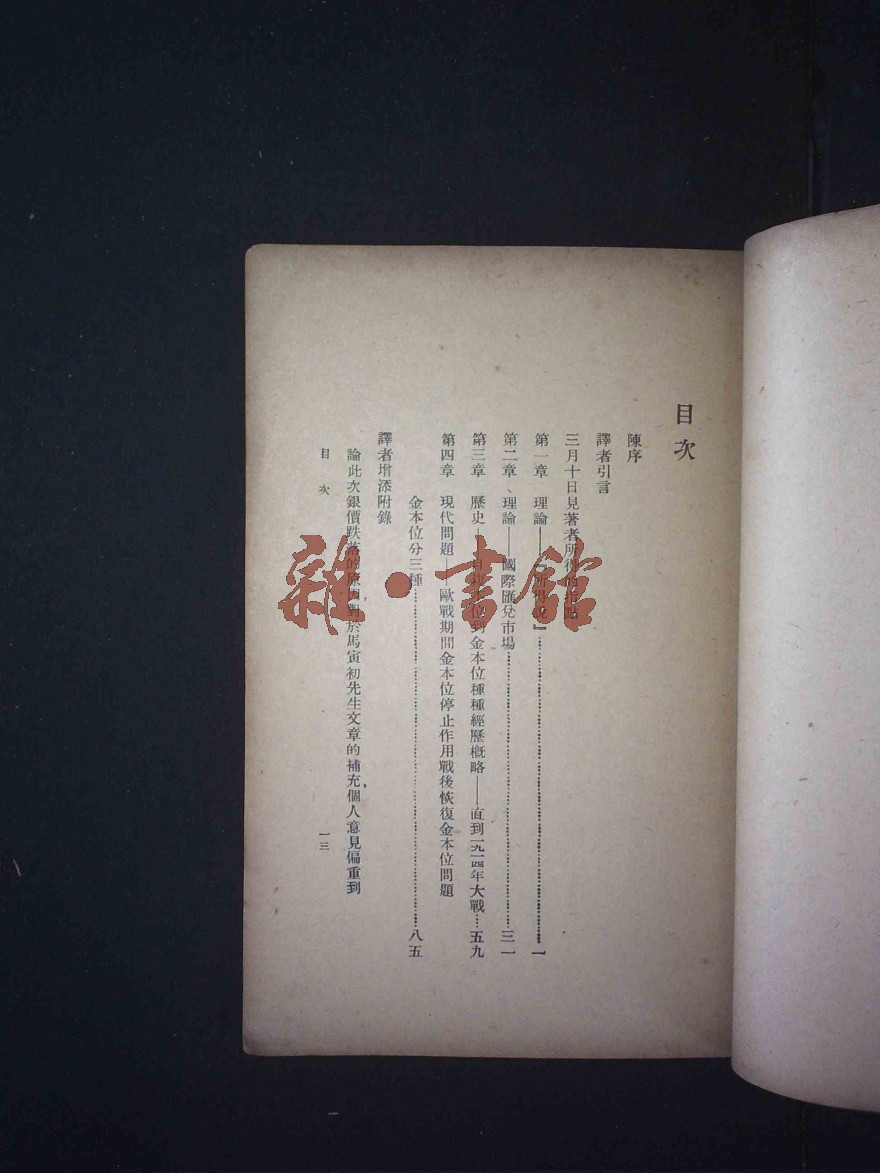 目次
陳序
譯者引言
三月十日見著者所
第一章　理論——『』……一
第二章、理論——國際匯兌市場……三一
第三章　歷史——位到金本位種種經歷概略——直到一九一四年大戰……五九
第四章　現代問題——歐戰期間金本位停止作用戰後恢復金本位問題
金本位分三種……八五
譯者增添附錄
論此次銀價跌落的原因，對於馬寅初先生文章的補充，個人意見偏重到
目次　一三
雜·書館